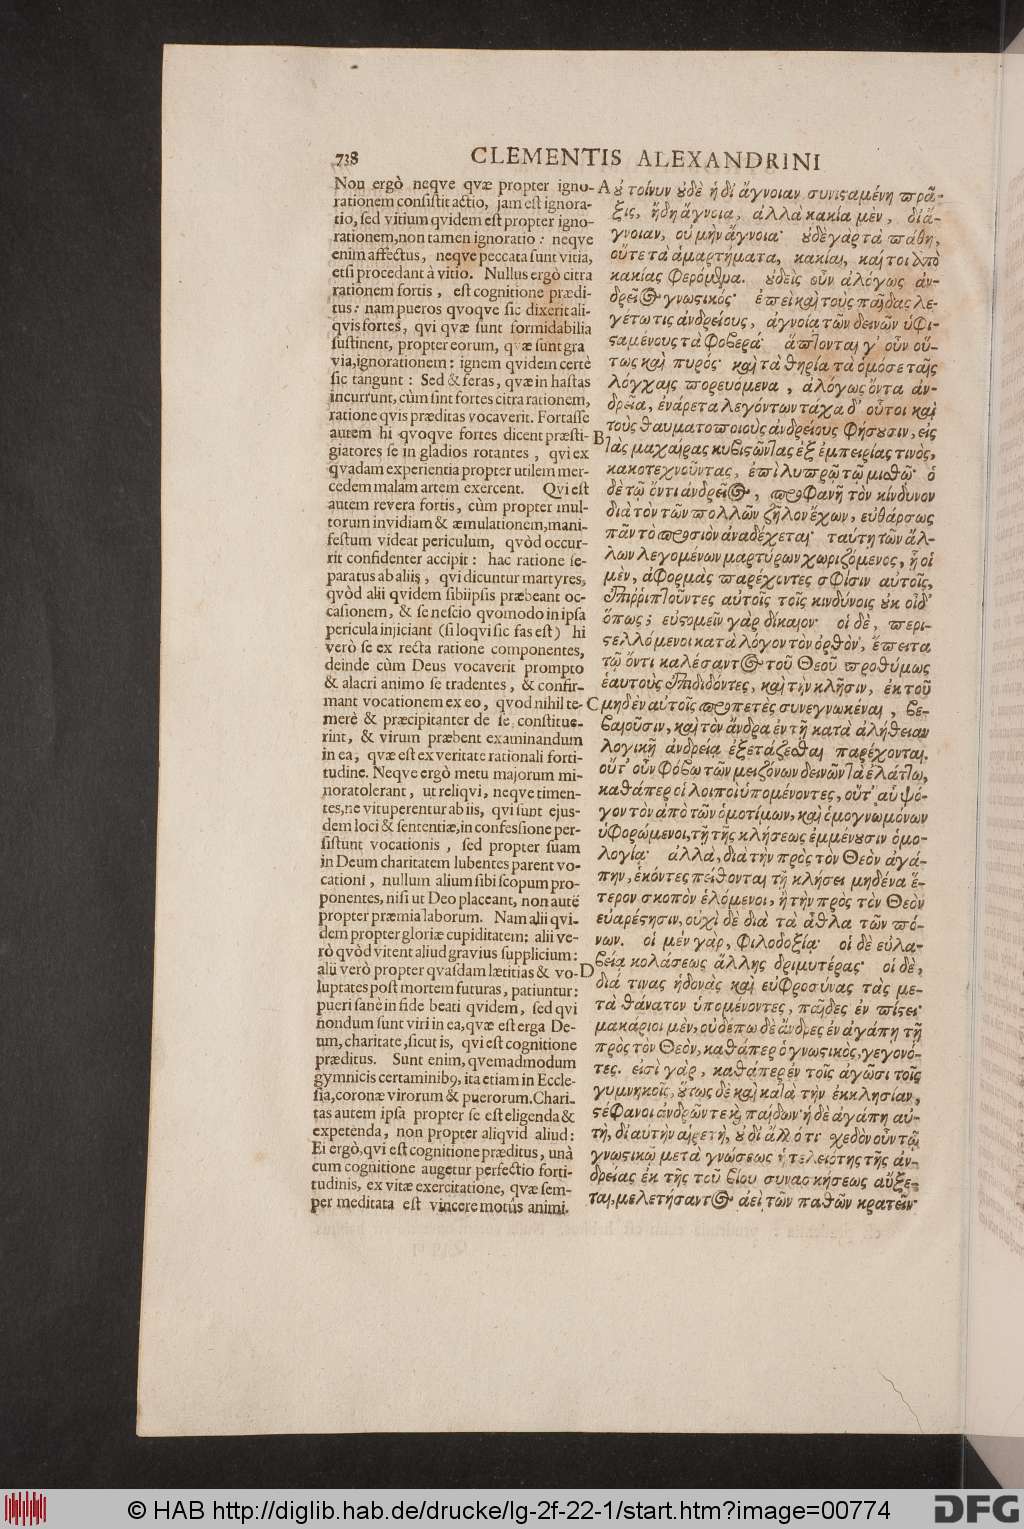 738
CLEMENTIS ALEXANDRINI
Non ergò neqve qvæ propter igno-
rationem consistit actio, jam est ignora-
tio, sed vitium qvidem est propter igno-
rationem, non tamen ignoratio: neqve
enim affectus, neqve peccata sunt vitia,
etsi procedant à vitio. Nullus ergò citra
rationem fortis, est cognitione prædi-
tus: nam pueros qvoqve sic dixerit ali-
qvis fortes, qvi qvæ sunt formidabilia
sustinent, propter eorum, qvæ sunt gra
via, ignorationem: ignem qvidem certè
sic tangunt: Sed & feras, qvæ in hastas
incurrunt, cùm sint fortes citra rationem,
ratione qvis præditas vocaverit. Fortasse
autem hi qvoqve fortes dicent præsti-
giatores se in gladios rotantes, qvi ex
qvadam experientia propter utilem mer-
cedem malam artem exercent. Qvi est
autem revera fortis, cùm propter mul-
torum invidiam & æmulationem, mani-
festum videat periculum, qvòd occur-
rit confidenter accipit: hac ratione se-
paratus ab aliis, qvi dicuntur martyres,
qvòd alii qvidem sibiipsis præbeant oc-
casionem, & se nescio qvomodo in ipsa
pericula injiciant (si loqvi sic fas est) hi
verò se ex recta ratione componentes,
deinde cùm Deus vocaverit prompto
& alacri animo se tradentes, & confir-
mant vocationem ex eo, qvod nihil te-
merè & præcipitanter de se constitue-
rint, & virum præbent examinandum
in ea, qvæ est ex veritate rationali forti-
tudine. Neqve ergò metu majorum mi-
nora tolerant, ut reliqvi, neqve timen-
tes, ne vituperentur ab iis, qvi sunt ejus-
dem loci & sententiæ, in confessione per-
sistunt vocationis, sed propter suam
in Deum charitatem lubentes parent vo-
cationi, nullum alium sibi scopum pro-
ponentes, nisi ut Deo placeant, non autē
propter præmia laborum. Nam alii qvi-
dem propter gloriæ cupiditatem: alii ve-
rò qvòd vitent aliud gravius supplicium:
alii verò propter qvasdam lætitias & vo-
luptates post mortem futuras, patiuntur:
pueri sanè in fide beati qvidem, sed qvi
nondum sunt viri in ea, qvæ est erga De-
um, charitate, sicut is, qvi est cognitione
præditus. Sunt enim, qvemadmodum
gymnicis certaminib9, ita etiam in Eccle-
sia, coronæ virorum & puerorum. Chari-
tas autem ipsa propter se est eligenda &
expetenda, non propter aliqvid aliud:
Ei ergò, qvi est cognitione præditus, unà
cum cognitione augetur perfectio forti-
tudinis, ex vitæ exercitatione, qvæ sem-
per meditata est vincere motus animi.
A
B
C
D
ȣ τοίνυν ȣδὲ ἡ δἰ ἄγνοιαν συνισαμένη πρᾶ-
ξις, ἤδη ἄγνοια, ἀλλὰ κακία μὲν, δἰ ἄ-
γνοιαν, οὐ μὴν ἄγνοια· ȣδὲ γὰρ τὰ πάθη,
οὔτε τὰ ἁμαρτήματα, κακίαι, καί τοι ὑπὸ
κακίας φερόμενα. ȣδεὶς οὖν ἀλόγως ἀν-
δρεῖος γνωστικός· ἐπεὶ καὶ τοὺς παῖδας λε-
γέτω τις ἀνδρείους, ἀγνοίᾳ τῶν δεινῶν ὑφι-
σαμένους τὰ φοβερά· ἅπτονται γ' οὖν οὕ-
τως καὶ πυρός· καὶ τὰ θηρία τὰ ὁμόσε ταῖς
λόγχαις πορευόμενα, ἀλόγως ὄντα ἀν-
δρεῖα, ἐνάρετα λεγόντων τάχα δ' οὗτοι καὶ
τοὺς θαυματοποιοὺς ἀνδρείους φήσουσιν, εἰς
τὰς μαχαίρας κυβιστῶντας ἐξ ἐμπειρίας τινὸς,
κακοτεχνοῦντας, ἐπὶ λυπρῷ τῷ μισθῷ· ὁ
δὲ τῷ ὄντι ἀνδρεῖος, προφανῆ τὸν κίνδυνον
διὰ τὸν τῶν πολλῶν ζῆλον ἔχων, εὐθάρσως
πᾶν τὸ προσιὸν ἀναδέχεται· ταύτη τῶν ἄλ-
λων λεγομένων μαρτύρων χωριζόμενος, ᾗ οἱ
μὲν, ἀφορμὰς παρέχοντες σφίσιν αὐτοῖς,
ἐπιῤῥιπτοῦντες αὐτοῖς τοῖς κινδύνοις ȣκ οἶδ'
ὅπως; εὐστομεῖν γὰρ δίκαιον· οἱ δὲ, περι-
στελλόμενοι κατὰ λόγον τὸν ὀρθὸν, ἔπειτα
τῷ ὄντι καλέσαντος τοῦ Θεοῦ προθύμως
ἑαυτοὺς ἐπιδιδόντες, καὶ τὴν κλῆσιν, ἐκ τοῦ
μηδὲν αὐτοῖς προπετὲς συνεγνωκέναι, βε-
βαιοῦσιν, καὶ τὸν ἄνδρα ἐν τῇ κατὰ ἀλήθειαν
λογικῇ ἀνδρείᾳ ἐξετάζεσθαι παρέχονται.
οὔτ' οὖν φόβῳ τῶν μειζόνων δεινῶν τὰ ἐλάττω,
καθάπερ οἱ λοιποὶ ὑπομένοντες, οὔτ' αὖ ψό-
γον τὸν ἀπὸ τῶν ὁμοτίμων, καὶ ὁμογνωμόνων
ὑφορώμενοι, τῇ τῆς κλήσεως ἐμμένȣσιν ὁμο-
λογίᾳ· ἀλλὰ, διὰ τὴν πρὸς τὸν Θεὸν ἀγά-
πην, ἑκόντες πείθονται τῇ κλήσει μηδένα ἕ-
τερον σκοπὸν ἑλόμενοι, ἢ τὴν πρὸς τὸν Θεὸν
εὐαρέστησιν, οὐχὶ δὲ διὰ τὰ ἆθλα τῶν πό-
νων. οἱ μὲν γὰρ, φιλοδοξίᾳ· οἱ δὲ εὐλα-
βείᾳ κολάσεως ἄλλης δριμυτέρας· οἱ δὲ,
διά τινας ἡδονὰς καὶ εὐφροσύνας τὰς με-
τὰ θάνατον ὑπομένοντες, παῖδες ἐν πίστει·
μακάριοι μὲν, οὐδέπω δὲ ἄνδρες ἐν ἀγάπῃ τῇ
πρὸς τὸν Θεὸν, καθάπερ ὁ γνωστικὸς, γεγονό-
τες. εἰσὶ γὰρ, καθάπερ ἐν τοῖς ἀγῶσι τοῖς
γυμνηκοῖς, ȣ̔́τως δὲ καὶ κατὰ τὴν ἐκκλησίαν,
στέφανοι ἀνδρῶν τε καὶ παίδων· ἡ δὲ ἀγάπη αὐ-
τὴ, δἰ αὑτὴν αἱρετὴ, ȣ δἰ ἄλλό τι· σχεδὸν οὖν τῷ
γνωστικῷ μετὰ γνώσεως ἡ τελειότης τῆς ἀν-
δρείας ἐκ τῆς τοῦ βίου συνασκήσεως αὔξε-
ται, μελετήσαντος ἀεὶ τῶν παθῶν κρατεῖν·
© HAB http://diglib.hab.de/drucke/lg-2f-22-1/start.htm?image=00774
DFG